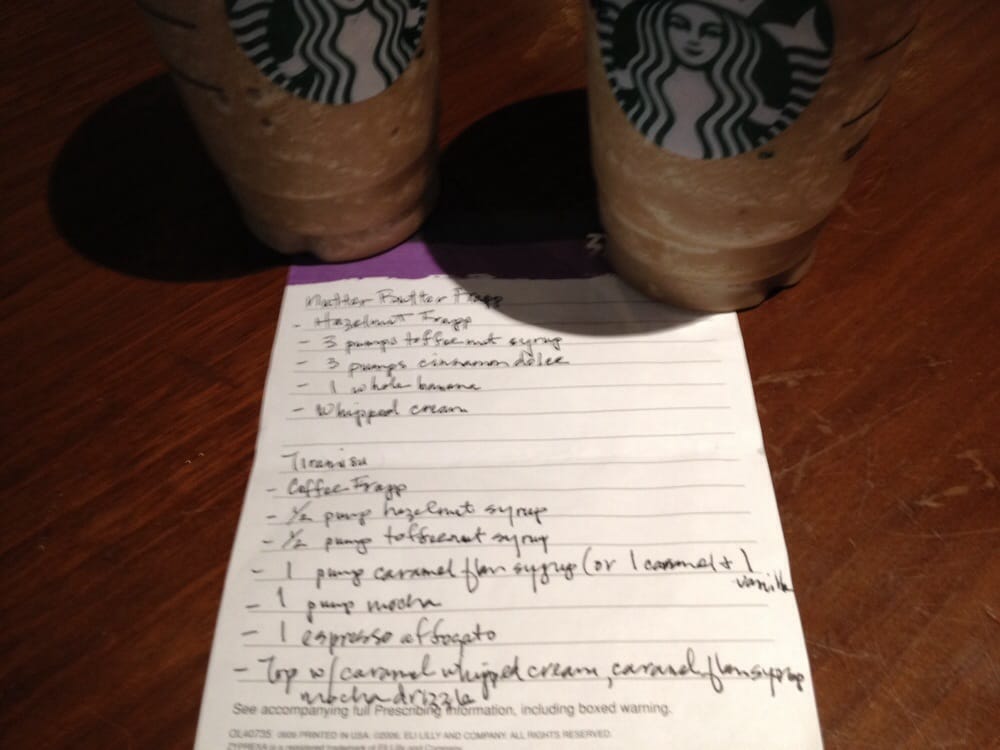 Nutter Butter Frapp
- Hazelnut Frapp
- 3 pumps toffee nut syrup
- 3 pumps cinnamon dolce
- 1 whole banana
- Whipped cream
Tiramisu
- Coffee Frapp
- 1/2 pump hazelnut syrup
- 1/2 pump toffeenut syrup
- 1 pump caramel flan syrup (or 1 caramel + 1
vanilla
- 1 pump mocha
- 1 espresso affogato
- Top w/ caramel whipped cream, caramel flan syrup
mocha drizzle
See accompanying full Prescribing Information, including boxed warning.
OL40735 0606 PRINTED IN USA. ©2006, ELI LILLY AND COMPANY. ALL RIGHTS RESERVED.
ZYPREXA is a registered trademark of Eli Lilly and Company.